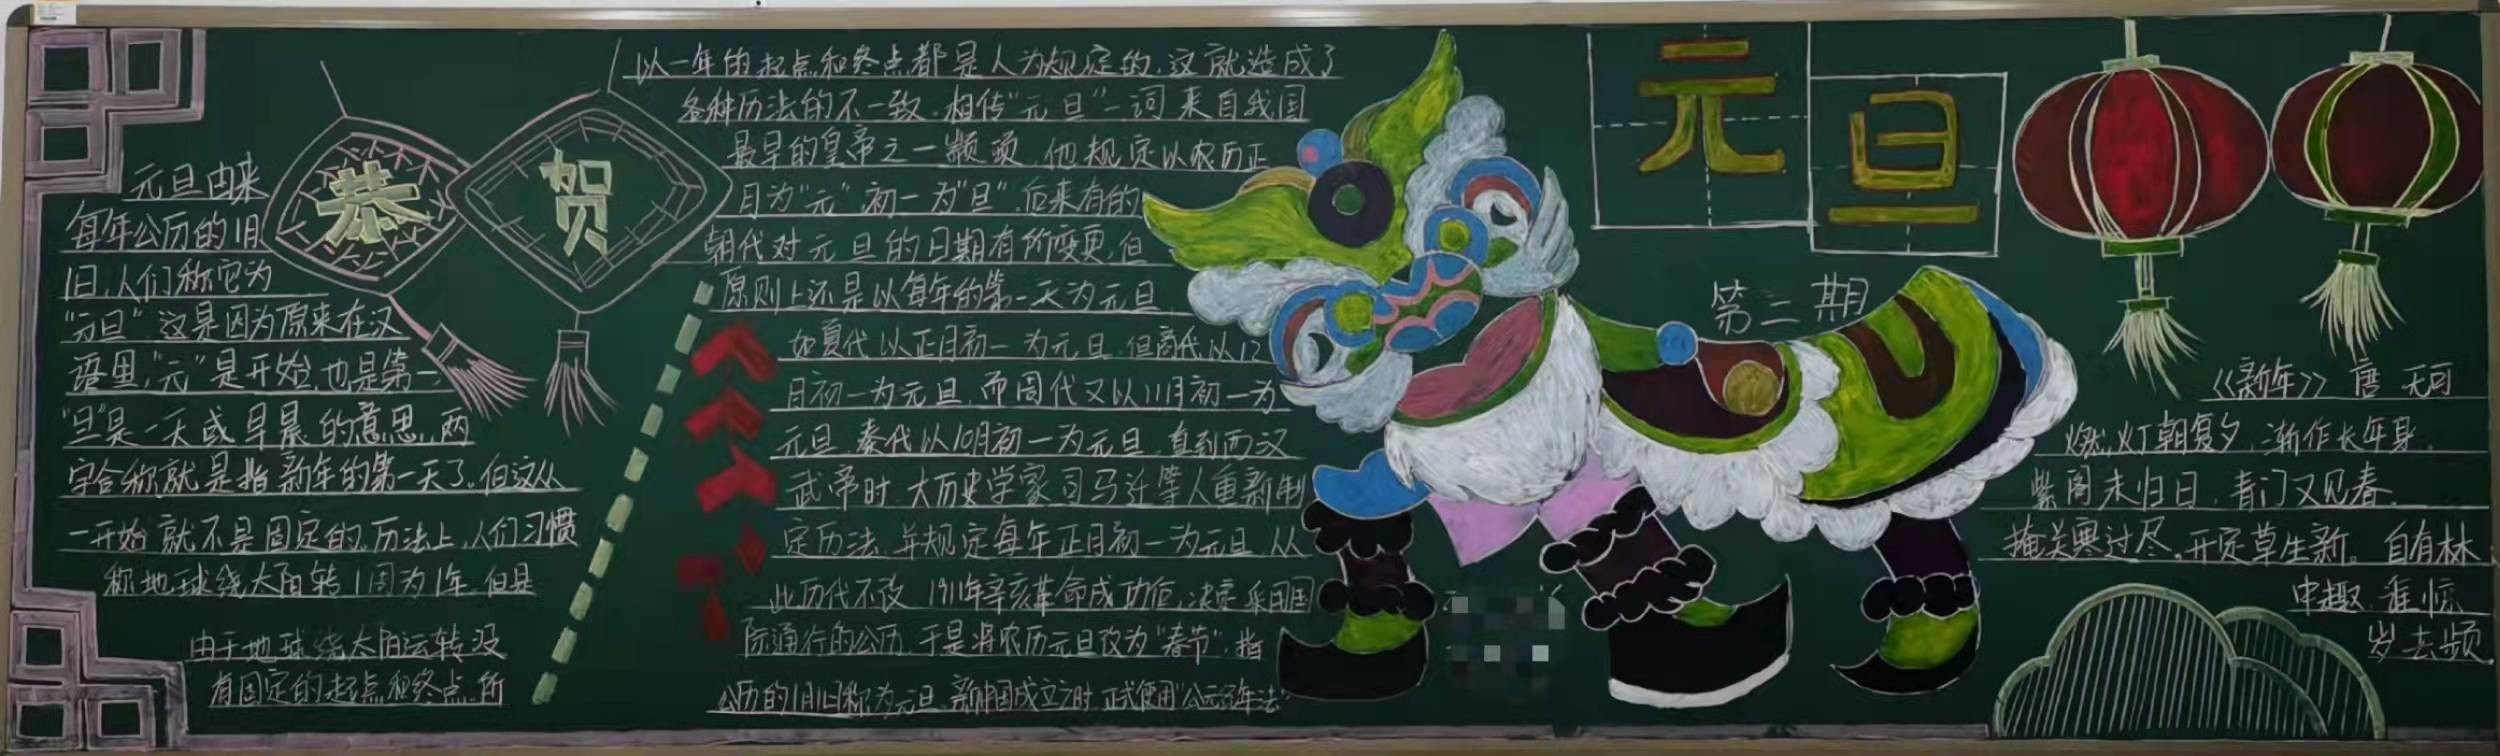 恭
贺
元旦由来
每年公历的1月
1日,人们称它为
"元旦".这是因为原来在汉
语里,"元"是开始,也是第一,
"旦"是一天或早晨的意思,两
字合称就是指新年的第一天了。但这从
一开始就不是固定的,历法上,人们习惯
称地球绕太阳转1周为1年,但是
由于地球绕太阳运转没
有固定的起点和终点,所
以一年的起点和终点都是人为规定的,这就造成了
各种历法的不一致.相传"元旦"一词来自我国
最早的皇帝之一颛顼,他规定以农历正
月为"元",初一为"旦".后来有的
朝代对元旦的日期有所变更,但
原则上还是以每年的第一天为元旦,
如夏代以正月初一为元旦,但商代以12
月初一为元旦,而周代又以11月初一为
元旦,秦代以10月初一为元旦,直到西汉
武帝时,大历史学家司马迁等人重新制
定历法,并规定每年正月初一为元旦,从
此历代不改,1911年辛亥革命成功后,决定采用国
际通行的公历,于是将农历元旦改为"春节",指
公历的1月1日称为元旦,新中国成立之时,正式使用"公元纪年法"
元旦
第二期
《新年》 唐 无可
燃灯朝复夕,渐作长年身.
紫阁未归日,青门又见春.
掩关寒过尽,开定草生新。自有林
中趣,谁惊
岁去频.